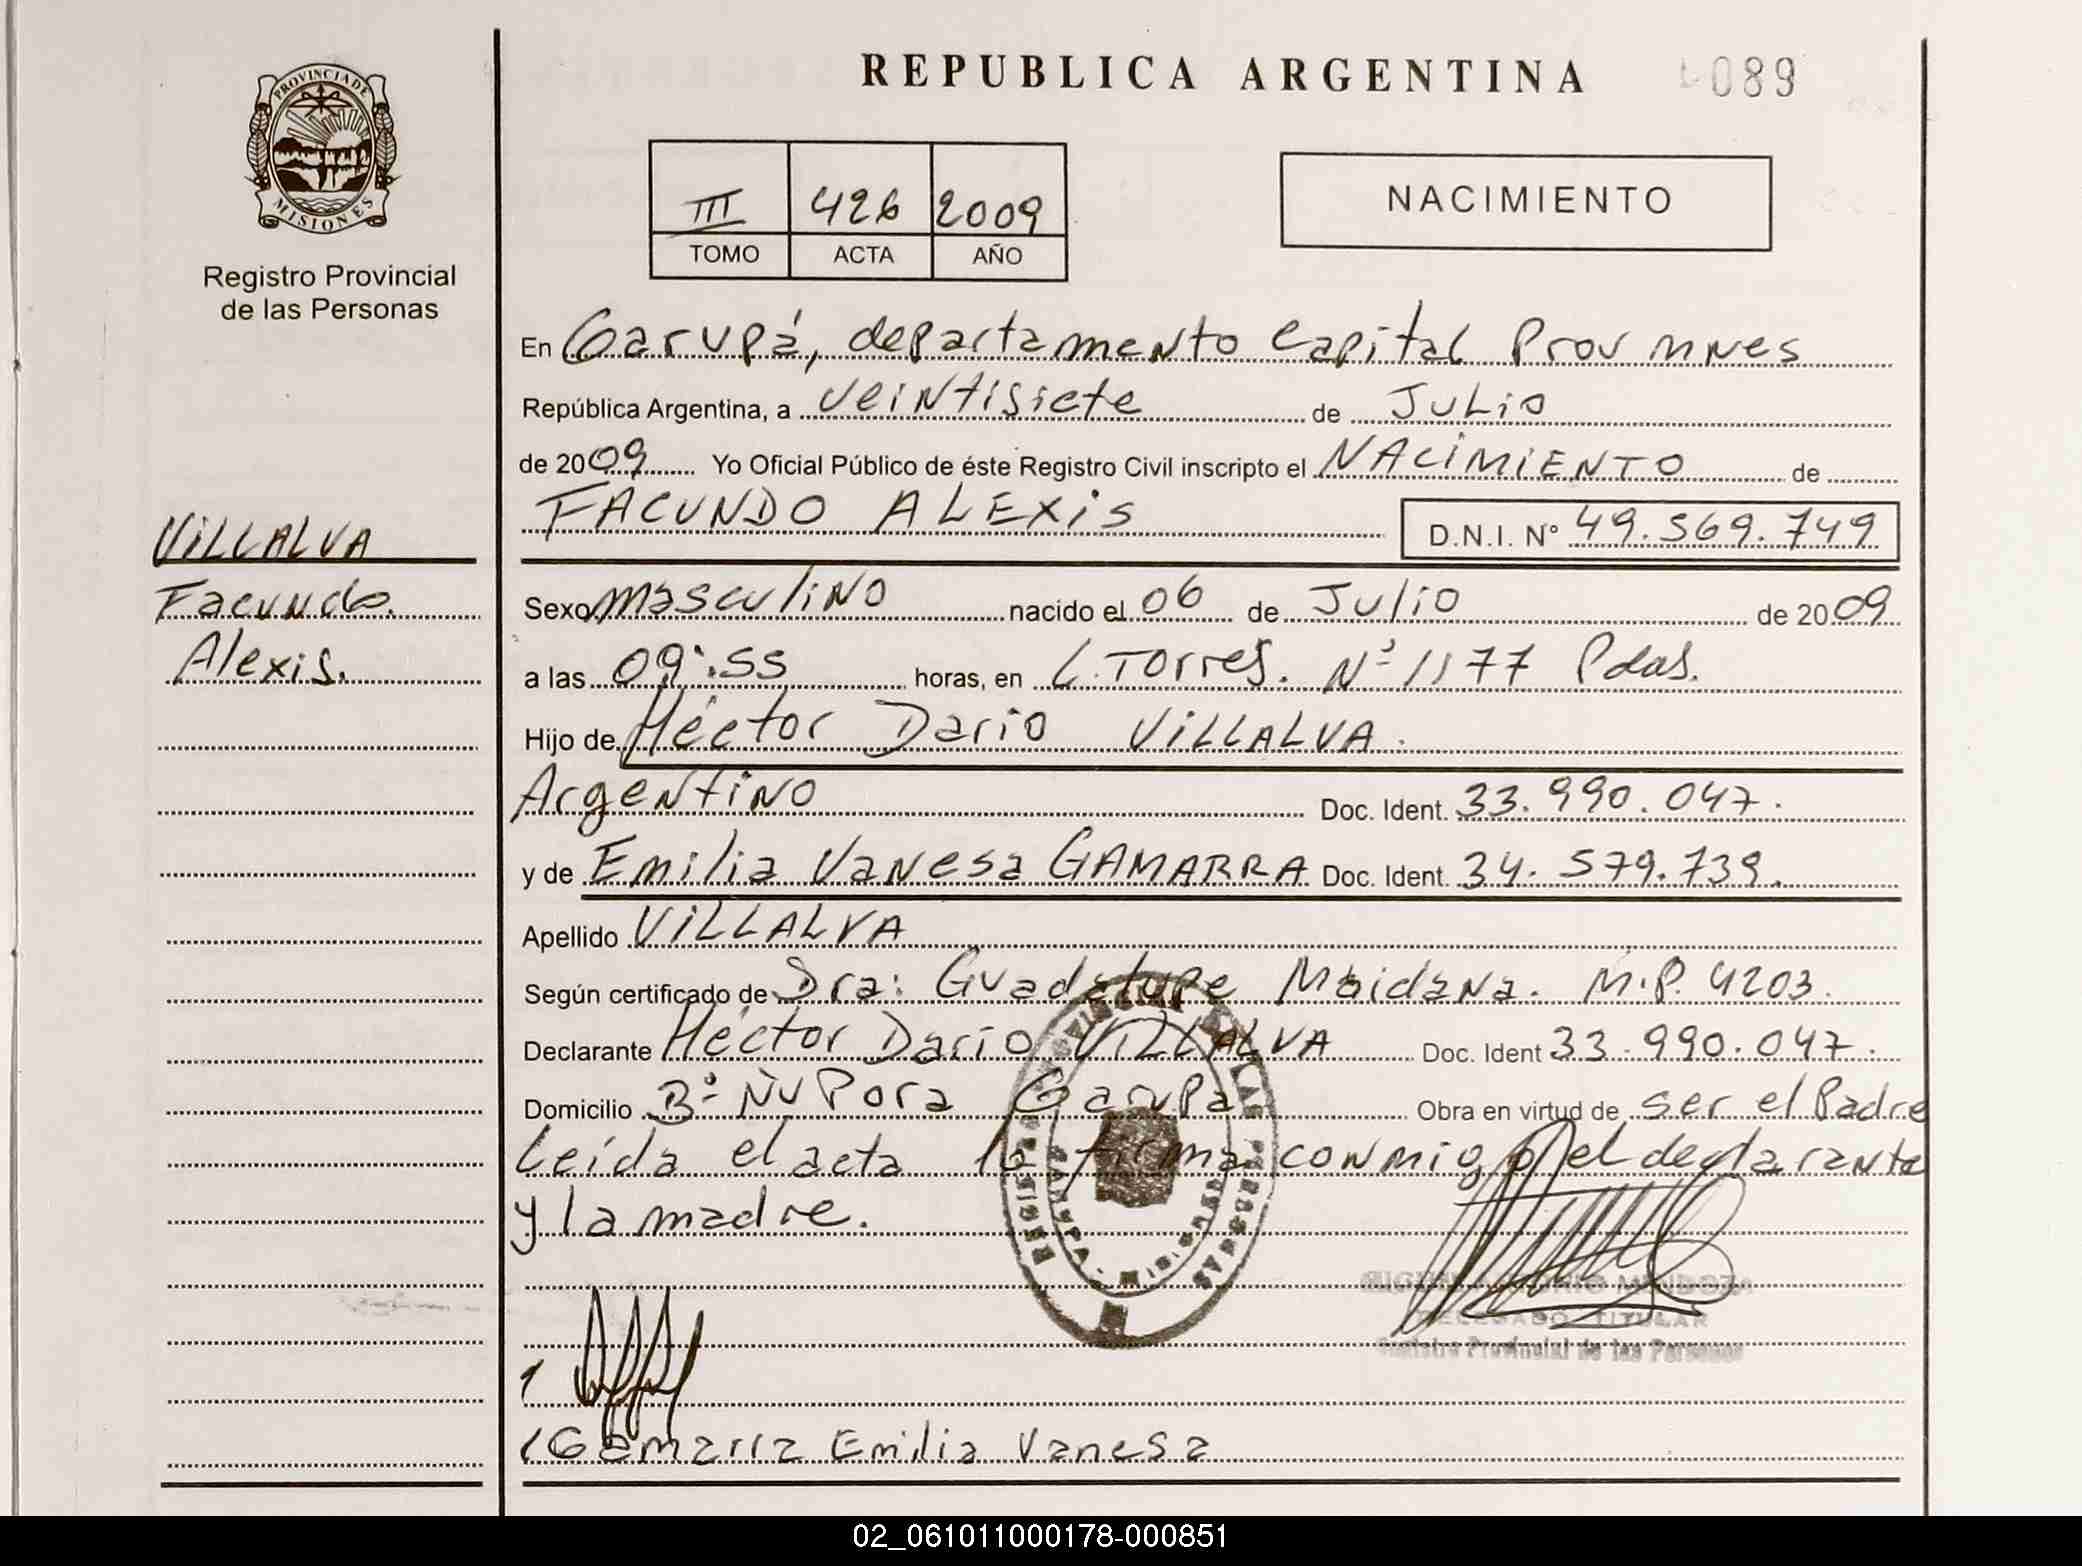 REPUBLICA ARGENTINA
089
PROVINCIA DE
MISIONES
Registro Provincial
de las Personas
III 426 2009
TOMO ACTA AÑO
NACIMIENTO
En Garupá, departamento Capital Prov Mnes
República Argentina, a veintisiete de Julio
de 2009 Yo Oficial Público de éste Registro Civil inscripto el NACIMIENTO de
FACUNDO ALEXIS D.N.I. Nº 49.569.749
VILLALVA
Facundo.
Alexis.
Sexo masculino nacido el 06 de Julio de 2009
a las 09:55 horas, en L. Torres. Nº 1177 Pdas.
Hijo de Héctor Dario VILLALVA.
Argentino Doc. Ident. 33.990.047.
y de Emilia Vanesa GAMARRA Doc. Ident. 34.579.739.
Apellido VILLALVA
Según certificado de Dra: Guadalupe Maidana. M.P. 4203.
Declarante Héctor Dario VILLALVA Doc. Ident 33.990.047.
Domicilio Bº Ñu Pora Garupa Obra en virtud de ser el Padre
Leída el acta la firma conmigo el declarante
y la madre.
REGISTRO PROVINCIAL DE LAS PERSONAS
MIGUEL ANTONIO MENDOZA
DELEGADO TITULAR
Registro Provincial de las Personas
Gamarra Emilia Vanesa
02_061011000178-000851